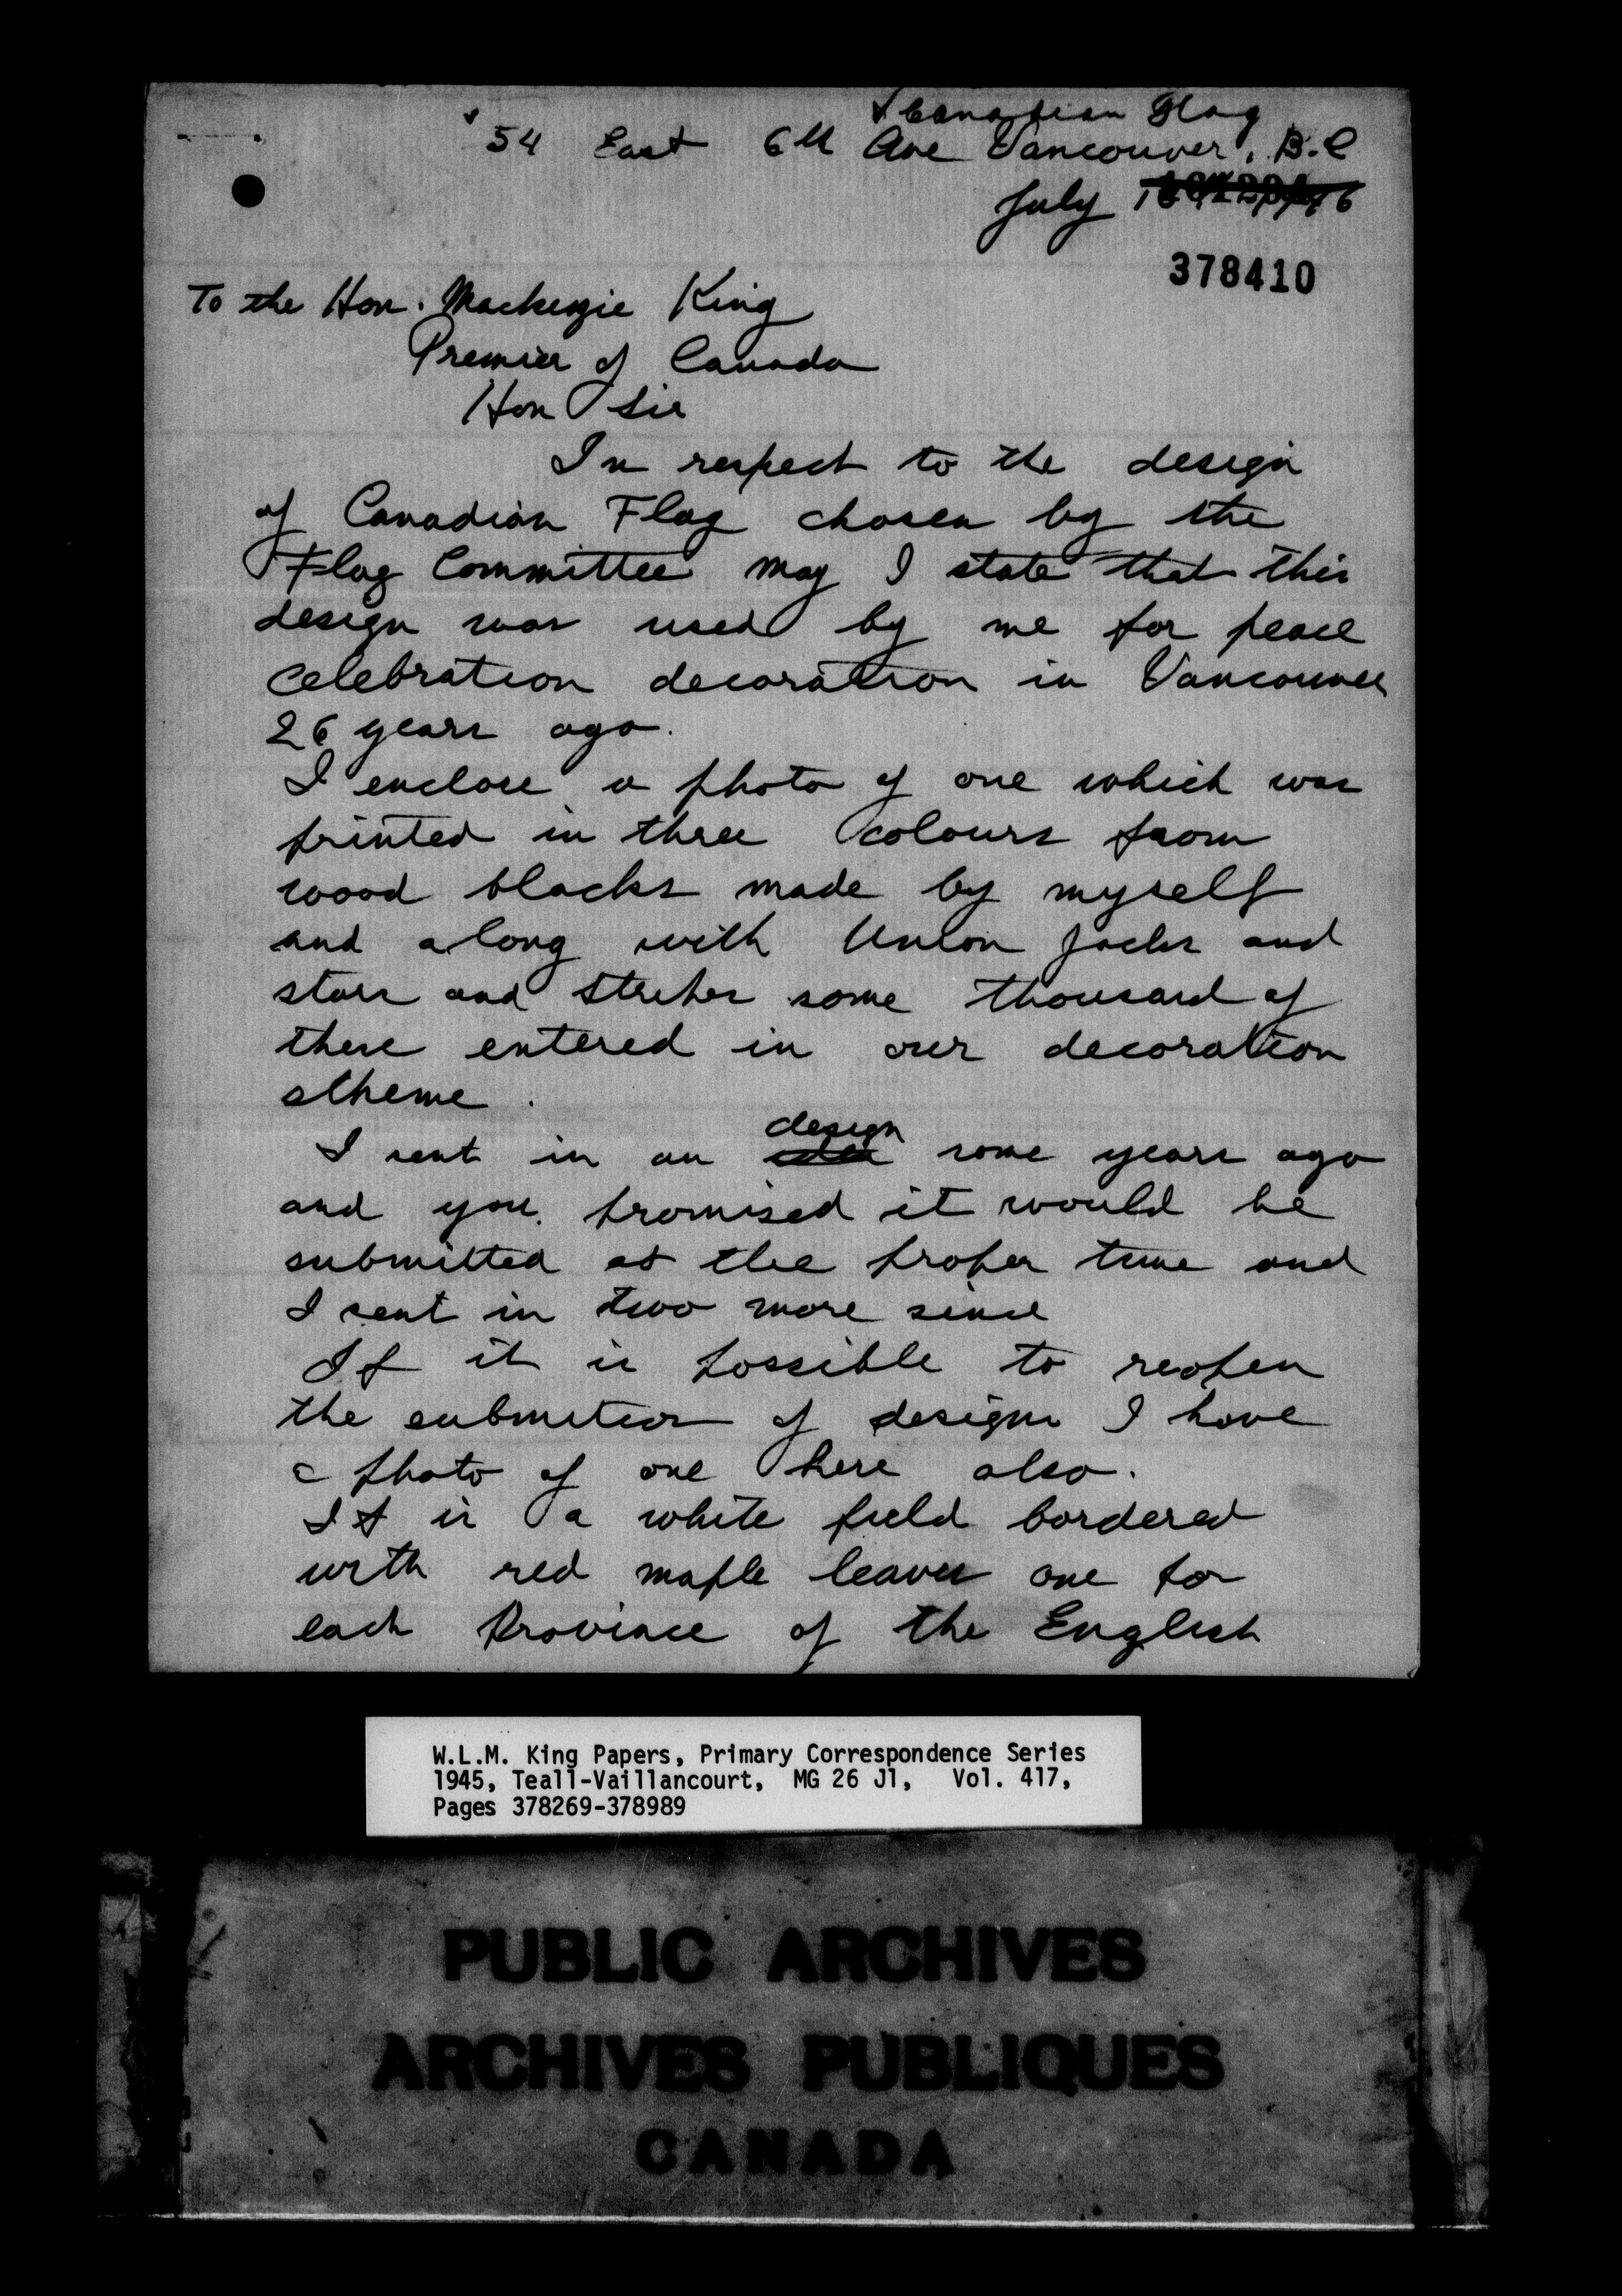 Canadian Flag
54 East 6th Ave Vancouver, B.C
July
378410
To the Hon. Mackenzie King
Premier of Canada
Hon Sir
In respect to the design
of Canadian Flag chosen by the
Flag Committee may I state that this
design was used by me for peace
celebration decoration in Vancouver
26 years ago.
I enclose a photo of one which was
printed in three colours from
wood blocks made by myself
and along with Union Jacks and
stars and stripes some thousand of
these entered in our decoration
scheme.
design
I sent in an some years ago
and you promised it would be
submitted at the proper time and
I sent in two more since
If it is possible to reopen
the submition of designs I have
a photo of one here also.
It is a white field bordered
with red maple leaves one for
each Province of the English
W.L.M. King Papers, Primary Correspondence Series
1945, Teall-Vaillancourt, MG 26 J1, Vol. 417,
Pages 378269-378989
PUBLIC ARCHIVES
ARCHIVES PUBLIQUES
CANADA